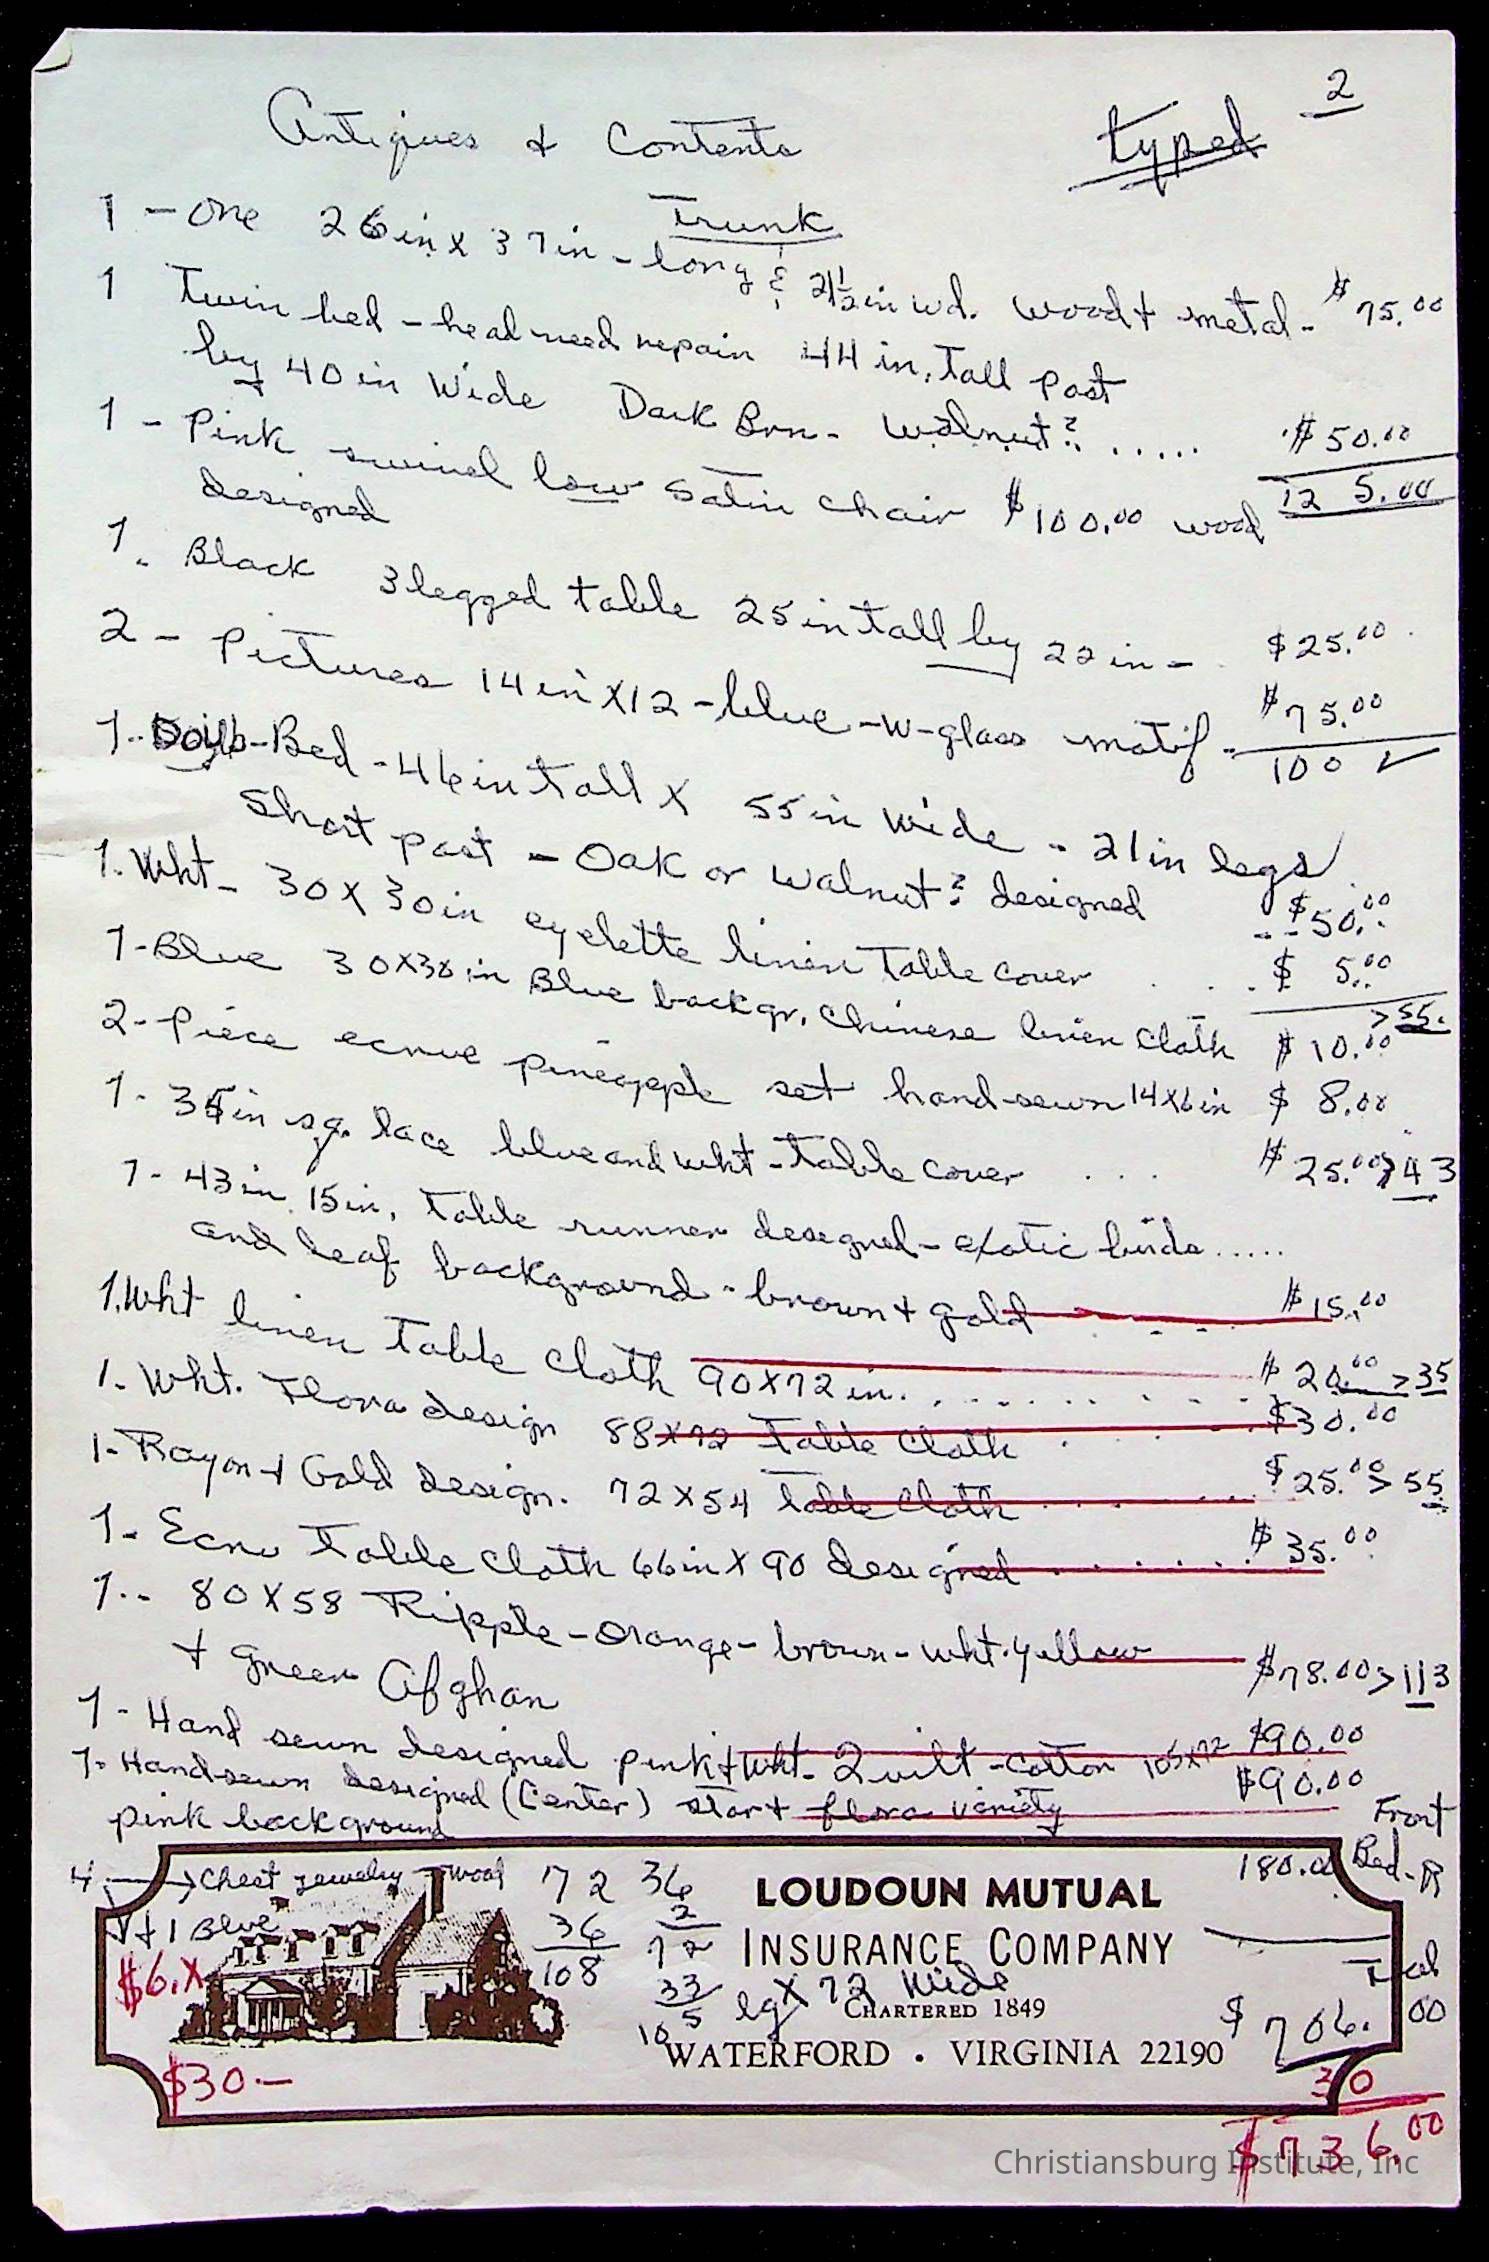 2
Antiques & Contents typed
Trunk
1 - One 26in x 37in - long & 21½ in wd. wood + metal - $75.00
1 Twin bed - head need repair 44 in. Tall post
by 40 in Wide Dark Brn - walnut? ..... $50.00
125.00
1 - Pink swivel low Satin chair $100.00 wood
designed
1. Black 3 legged table 25 in tall by 22 in - $25.00
2 - Pictures 14in x 12 - blue - w - glass motif - $75.00
100 ✓
1.. Bed - 46in Tall x 55in wide - 21in legs
Short post - Oak or walnut? designed $50.00
1. Wht - 30 x 30in eyelette linen Table cover . . . $ 5.00
> 55.
1 - Blue 30x30 in Blue backgr. Chinese linen Cloth $10.00
2 - Piece ecrue pineapple set hand-sewn 14x6in $ 8.00
1 - 35in sq. lace blue and wht - Table cover . . . $25.00 > 43
1 - 43in 15in, Table runner designed - exotic birds .....
and leaf background - brown + gold . . . $15.00
1. Wht linen Table cloth 90x72 in. . . . . . . . $20.00 > 35
1. Wht. Flora design 88x72 Table Cloth . . . . $30.00
1 - Rayon + Gold design. 72x54 table cloth . . . . $25.00 > 55
1 - Ecru Table cloth 66in x 90 designed . . . . . . $35.00
1.. 80 x 58 Ripple - Orange - brown - wht. yellow
+ green Afghan $78.00 > 113
1 - Hand sewn designed pink + wht - Quilt - cotton 105x72 $90.00
1 - Hand-sewn designed (Center) star + flora variety $90.00
pink background
Front
Bed - R
180.00
4 → Chest jewelry - wood
+ 1 Blue
$6. x
$30 -
72
36
108
36
2
72
33
105 lg x 72 Wide
LOUDOUN MUTUAL
INSURANCE COMPANY
CHARTERED 1849
WATERFORD • VIRGINIA 22190
$706.00
30
$736.00
Christiansburg Institute, Inc